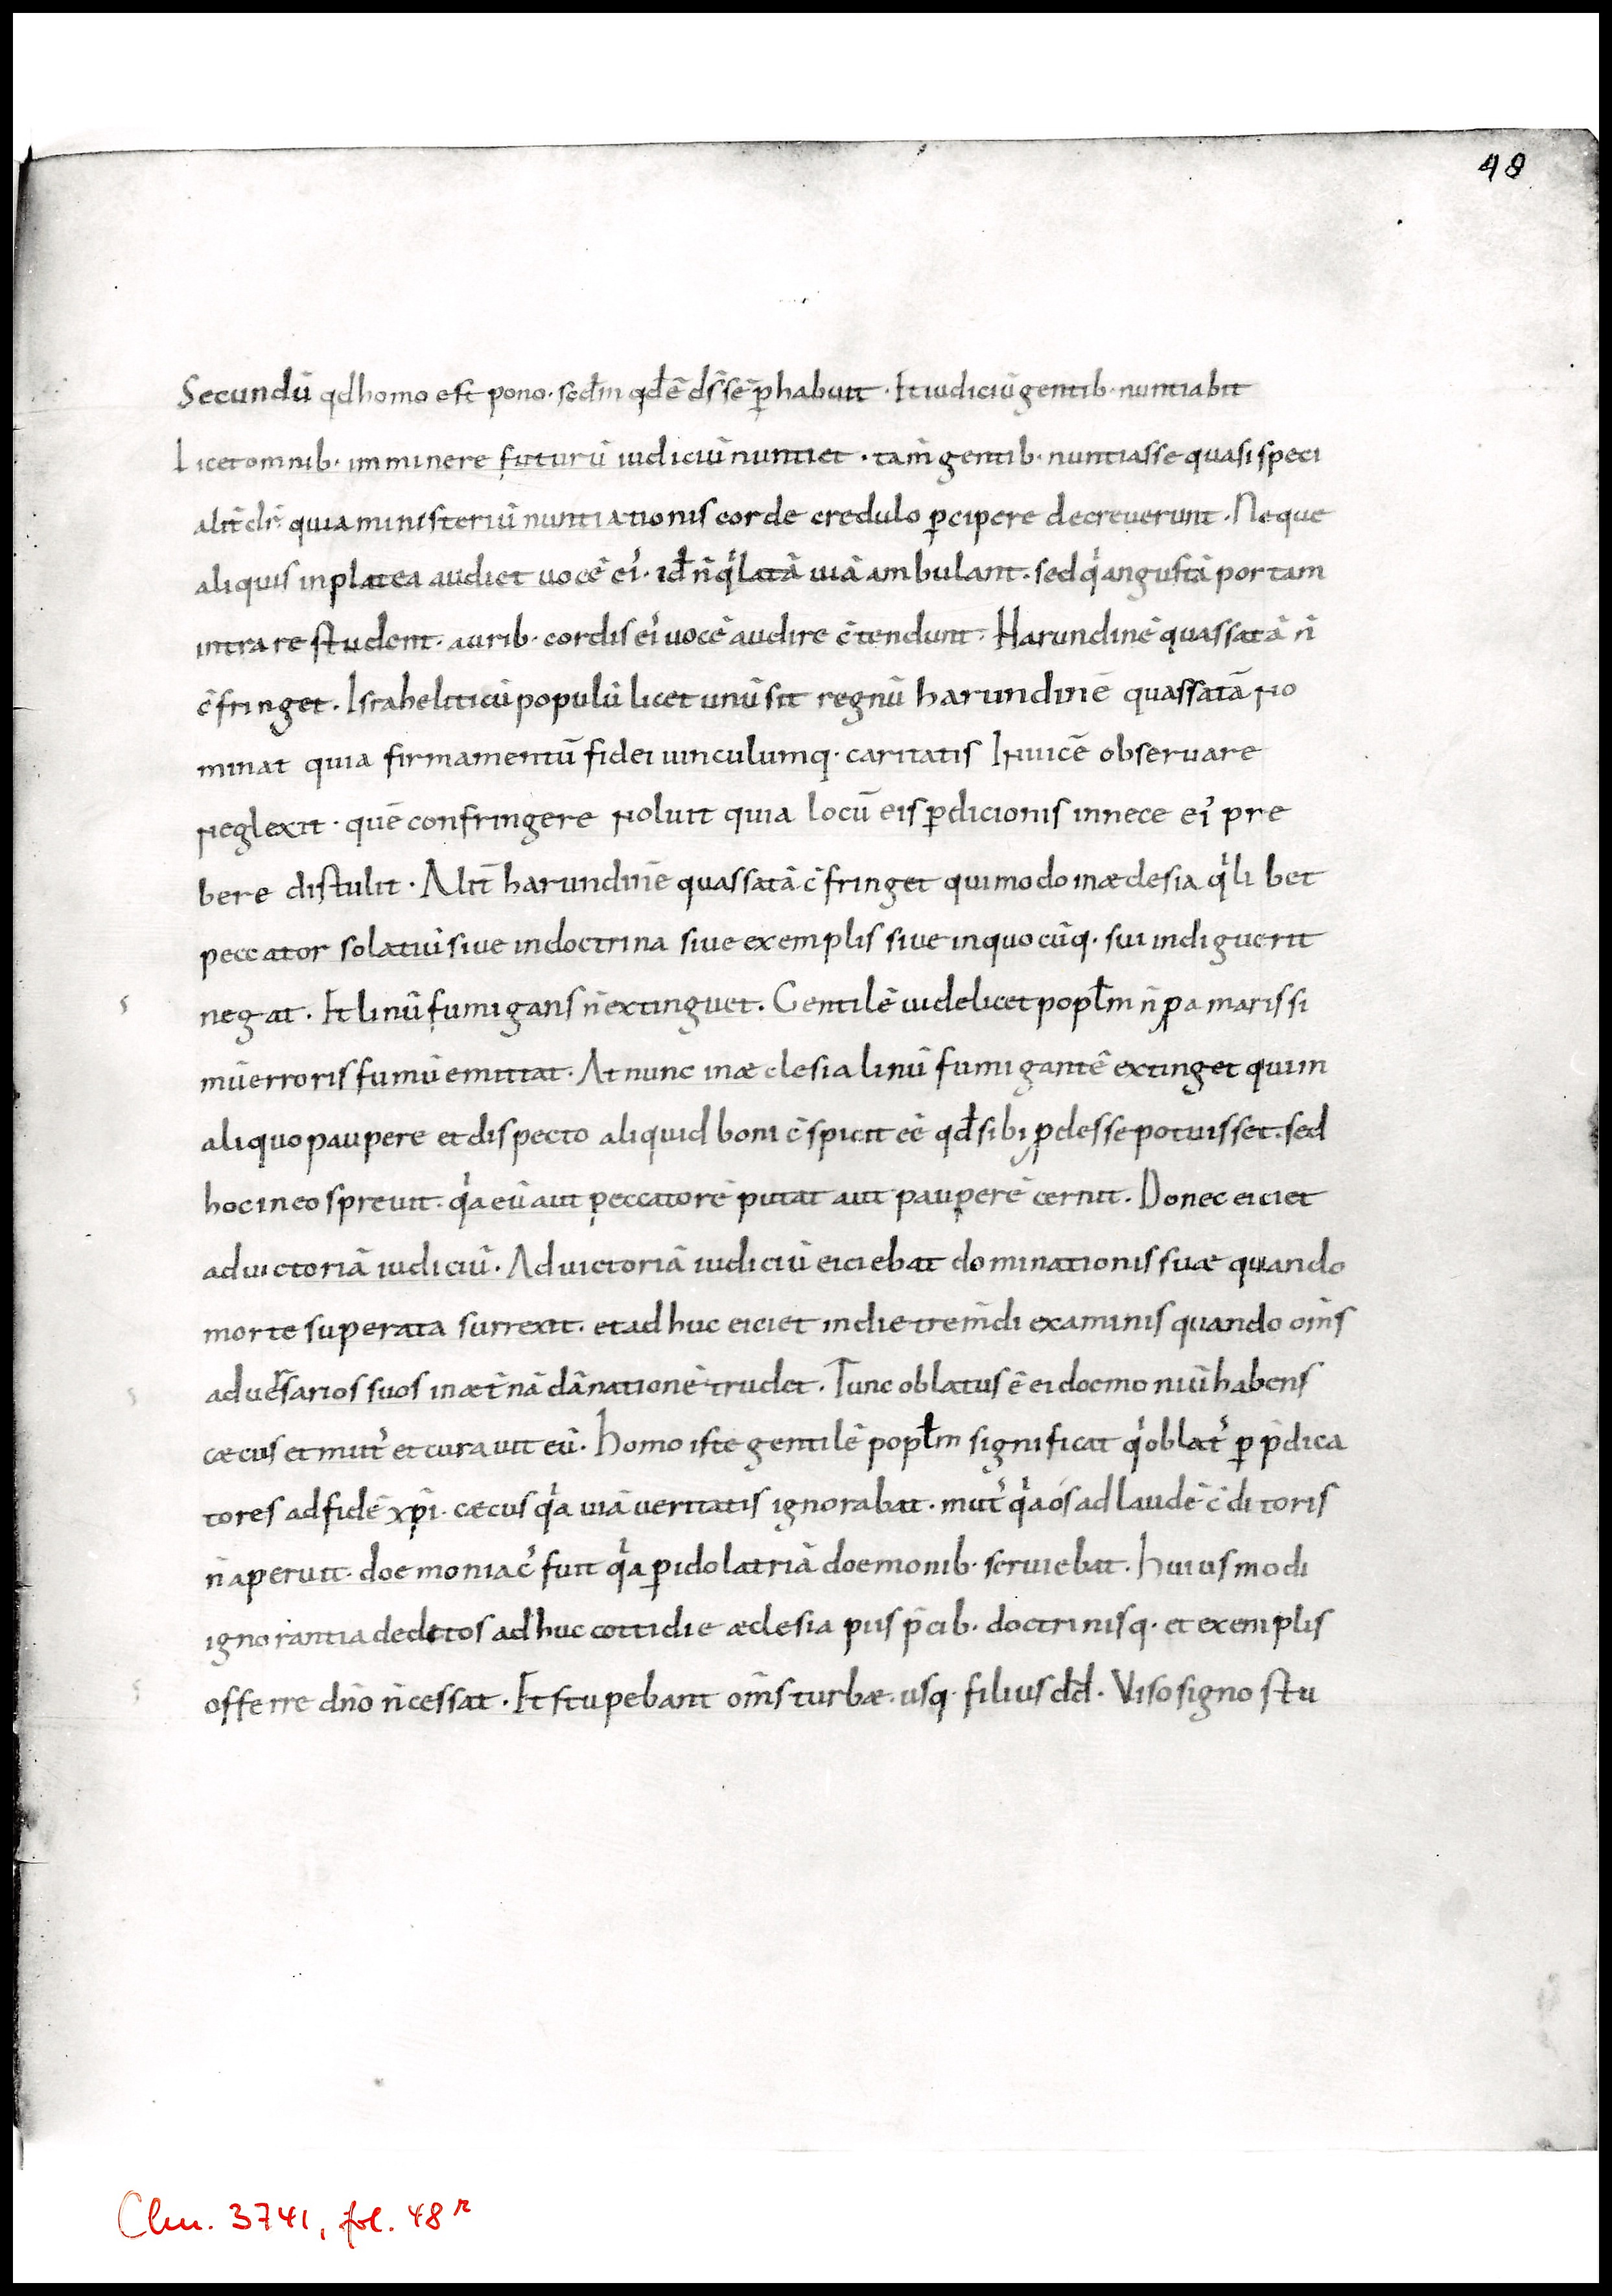 48
Secundū qd homo est pono · sedm̄ qđ ē ds̄ sēp habuit · Et iudiciū gentib · nuntiabit
Licet omnib · imminere futurū iudiciū nuntiet · tam̄ gentib · nuntiasse quasi speci
alit̄ dr̄ quia ministeriū nuntiationis corde credulo p̄cipere decreuerunt · Neque
aliquis in platea audiet uocē ei᾽ · id̄ n̄ qͥ latā uiā ambulant · sed qͥ angustā portam
intrare student · aurib · cordis ei᾽ uocē audire c̄tendunt · Harundinē quassatā n̄
c̄fringet · Israheliticū populū licet unū sit regnū harundinē quassatā no
minat quia firmamentū fidei uinculumq · caritatis Inuicē obseruare
neglexit · quē confringere noluit quia locū eis p̄dicionis innece ei᾽ pre
bere distulit · Alit̄ harundinē quassatā c̄fringet qui modo in æclesia qͥlibet
peccator solatiū siue in doctrina siue exemplis siue in quocūq · sui indiguerit
negat · Et linū fumigans n̄ extinguet · Gentilē uidelicet popłm n̄ p amarissi
mū erroris fumū emittat · At nunc in æclesia linū fumigantē extinget qui in
aliquo paupere et dispecto aliquid boni c̄spicit eē qđ sibi pdesse potuisset · sed
hoc in eo spreuit · qͥa eū aut peccatorē putat aut pauperē cernit · Donec eiciet
ad uictoriā iudiciū · Ad uictoriā iudiciū eiciebat dominationis suæ quando
morte superata surrexit · et adhuc eiciet in die trem̄di examinis quando om̄s
aduersarios suos in æt̄nā dānationē trudet · Tunc oblatus ē ei doemoniū habens
cæcus et mut᾽ et curauit eū · Homo iste gentilē popłm significat qͥ oblat᾽ p p̄dica
tores ad fidē xp̄i · cæcus qͥa uiā ueritatis ignorabat · mut᾽ qͥa ós ad laudē c̄ditoris
n̄ aperuit · doemoniac᾽ fuit qͥa p idolatriā doemonib · seruiebat · Huiusmodi
ignorantia deditos adhuc cottidie æclesia piis p̄cib · doctrinisq · et exemplis
offerre dn̄o n̄ cessat · Et stupebant om̄s turbæ · usq · filius dd̄ · Viso signo stu
Clm. 3741, fol. 48ʳ